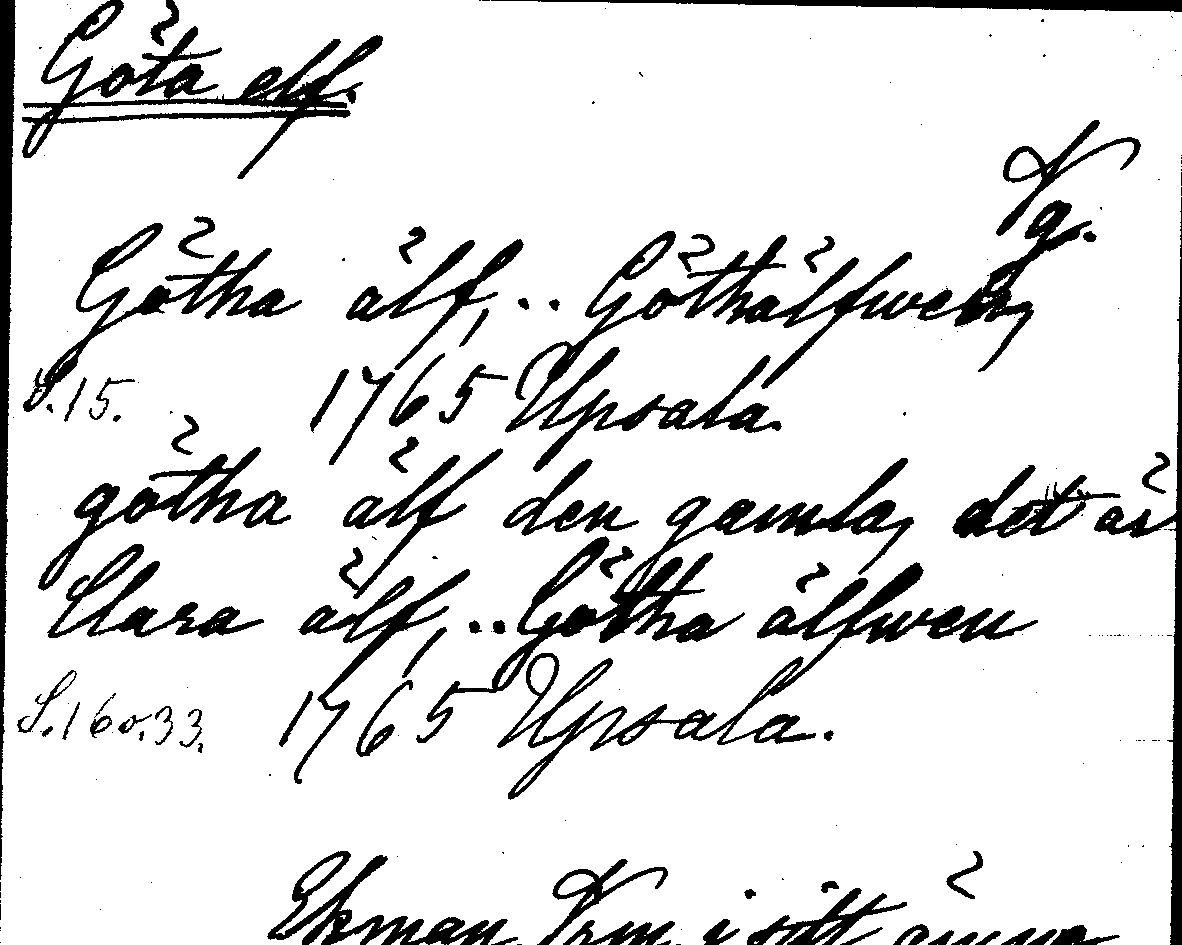 Göta elf.
Vg.
Götha älf, .. Göthälfwen,
S. 15. 1765 Upsala.
götha älf den gamla, det är
Clara älf, .. Götha älfwen
S. 16 o. 33. 1765 Upsala.
Ekman Vrm. i sitt